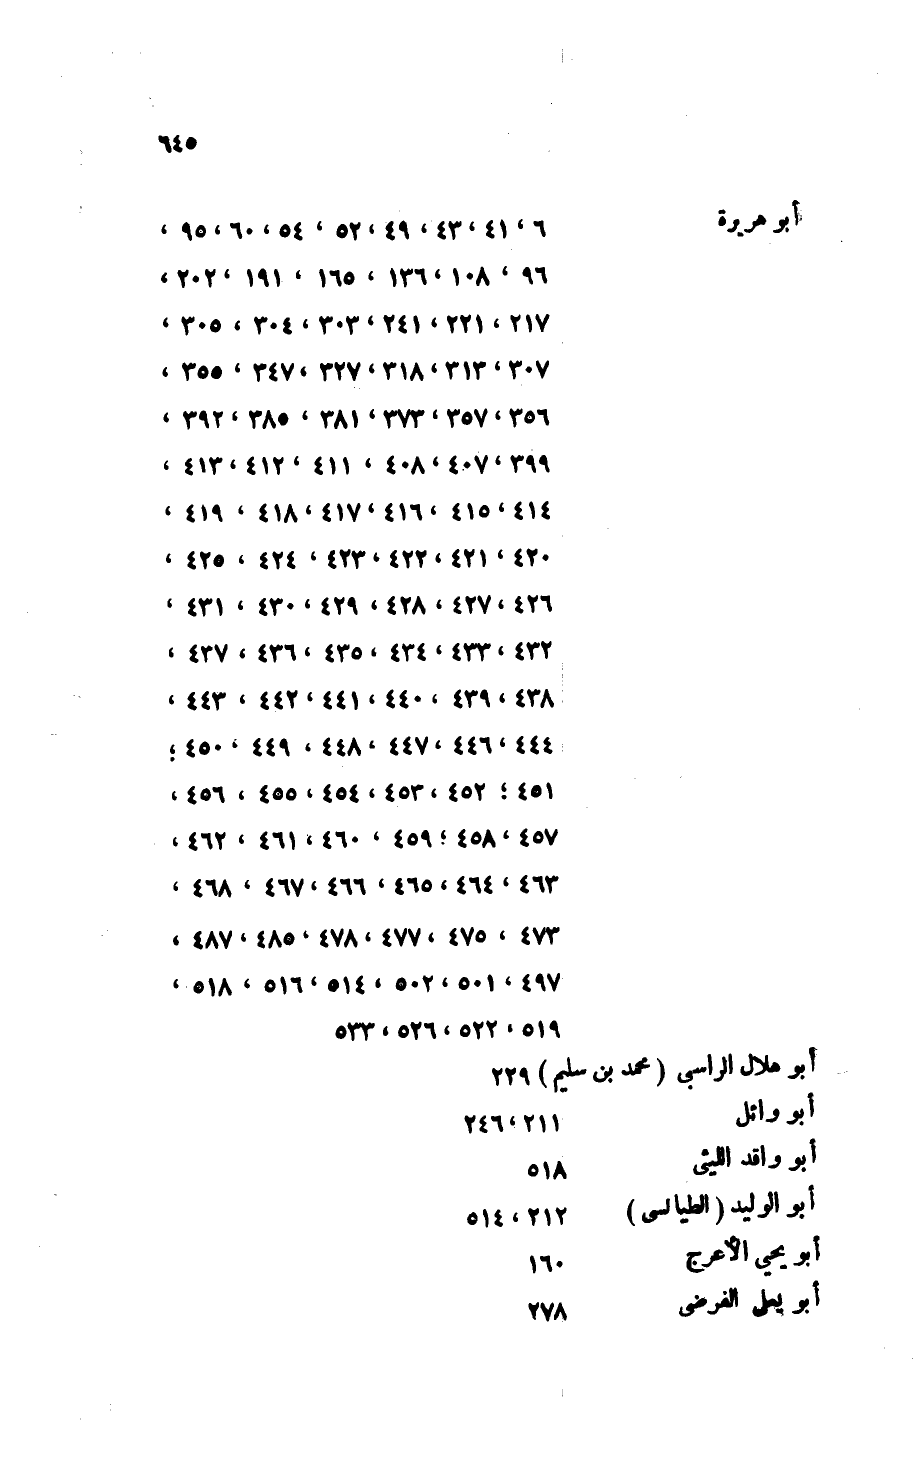 ٦٤٥
أبو هريرة ٦ ، ٤١ ، ٤٣ ، ٤٩ ، ٥٢ ، ٥٤ ، ٦٠ ، ٩٥ ،
٩٦ ، ١٠٨ ، ١٣٦ ، ١٦٥ ، ١٩١ ، ٢٠٢ ،
٢١٧ ، ٢٢١ ، ٢٤١ ، ٣٠٣ ، ٣٠٤ ، ٣٠٥ ،
٣٠٧ ، ٣١٣ ، ٣١٨ ، ٣٢٧ ، ٣٤٧ ، ٣٥٥ ،
٣٥٦ ، ٣٥٧ ، ٣٧٣ ، ٣٨١ ، ٣٨٥ ، ٣٩٢ ،
٣٩٩ ، ٤٠٧ ، ٤٠٨ ، ٤١١ ، ٤١٢ ، ٤١٣ ،
٤١٤ ، ٤١٥ ، ٤١٦ ، ٤١٧ ، ٤١٨ ، ٤١٩ ،
٤٢٠ ، ٤٢١ ، ٤٢٢ ، ٤٢٣ ، ٤٢٤ ، ٤٢٥ ،
٤٢٦ ، ٤٢٧ ، ٤٢٨ ، ٤٢٩ ، ٤٣٠ ، ٤٣١ ،
٤٣٢ ، ٤٣٣ ، ٤٣٤ ، ٤٣٥ ، ٤٣٦ ، ٤٣٧ ،
٤٣٨ ، ٤٣٩ ، ٤٤٠ ، ٤٤١ ، ٤٤٢ ، ٤٤٣ ،
٤٤٤ ، ٤٤٦ ، ٤٤٧ ، ٤٤٨ ، ٤٤٩ ، ٤٥٠ ؛
٤٥١ ؛ ٤٥٢ ، ٤٥٣ ، ٤٥٤ ، ٤٥٥ ، ٤٥٦ ،
٤٥٧ ، ٤٥٨ ؛ ٤٥٩ ، ٤٦٠ ، ٤٦١ ، ٤٦٢ ،
٤٦٣ ، ٤٦٤ ، ٤٦٥ ، ٤٦٦ ، ٤٦٧ ، ٤٦٨ ،
٤٧٣ ، ٤٧٥ ، ٤٧٧ ، ٤٧٨ ، ٤٨٥ ، ٤٨٧ ،
٤٩٧ ، ٥٠١ ، ٥٠٢ ، ٥١٤ ، ٥١٦ ، ٥١٨ ،
٥١٩ ، ٥٢٢ ، ٥٢٦ ، ٥٣٣
أبو هلال الراسبى ( محمد بن سليم ) ٢٢٩
أبو وائل ٢١١ ، ٢٤٦
أبو واقد الليثى ٥١٨
أبو الوليد ( الطيالسى ) ٢١٢ ، ٥١٤
أبو يحيي الأعرج ١٦٠
أبو يعلى الفرضى ٢٧٨